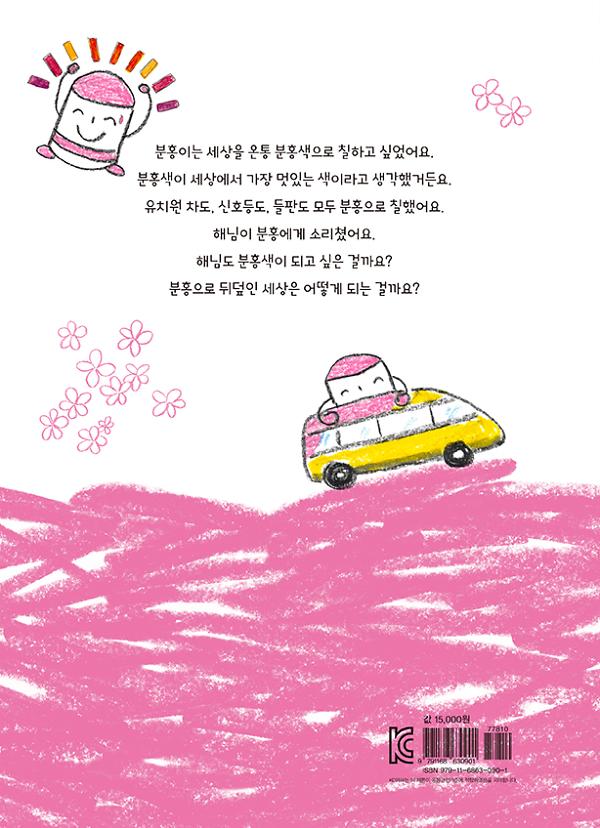 분홍이는 세상을 온통 분홍색으로 칠하고 싶었어요.
분홍색이 세상에서 가장 멋있는 색이라고 생각했거든요.
유치원 차도, 신호등도, 들판도 모두 분홍으로 칠했어요.
해님이 분홍에게 소리쳤어요.
해님도 분홍색이 되고 싶은 걸까요?
분홍으로 뒤덮인 세상은 어떻게 되는 걸까요?
값 15,000원
77810
9 791168 630901
ISBN 979-11-6863-090-1